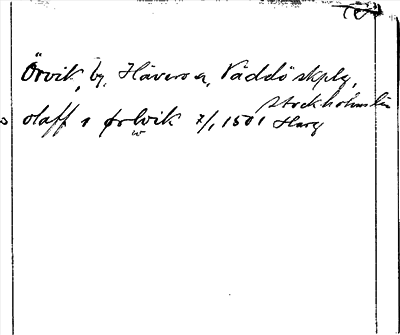 Örvik, by, Häverö s, Väddö skplg,
Stockholms län
olaff i ørlwik 7/1 1501 Harg